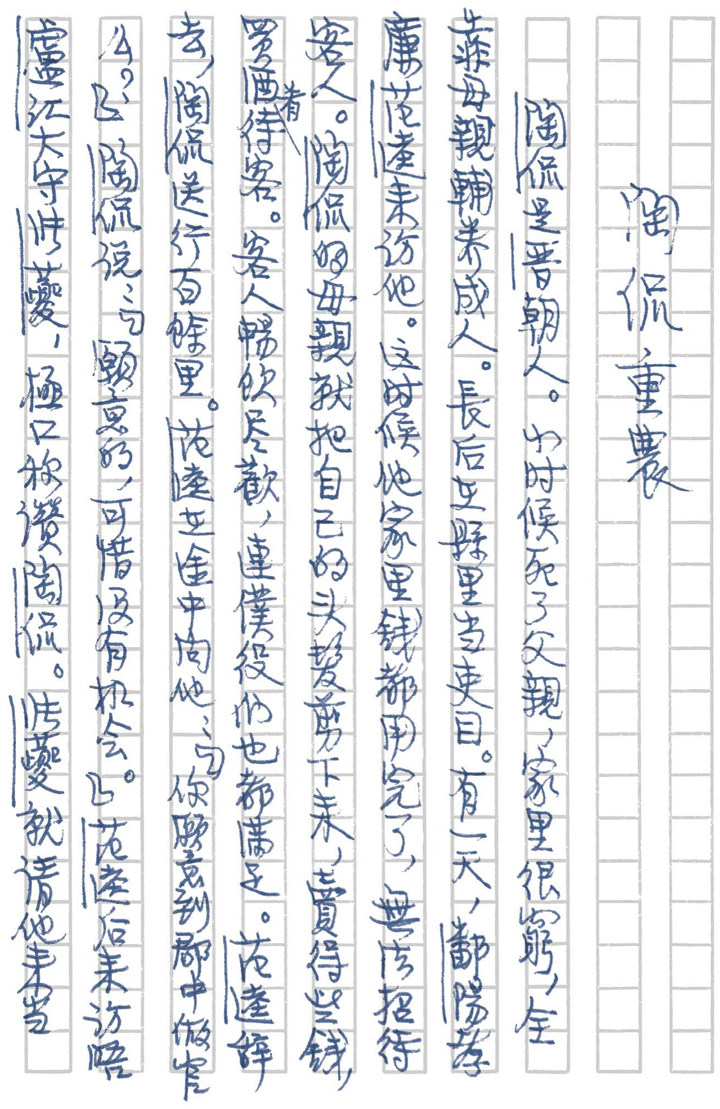 陶侃重農
陶侃是晋朝人。小时候死了父親，家里很窮，全
靠母親輔养成人。長后在縣里当吏目。有一天，鄱陽孝
廉范逵来访他。这时候他家里钱都用完了，無法招待
客人。陶侃的母親就把自己的头髮剪下来，賣得些錢，
買酒肴待客。客人暢飲尽歡，連僕役们也都满足。范逵辞
去，陶侃送行百餘里。范逵在途中向他：「你願意到郡中做官
么？」陶侃说：「願意的，可惜没有机会。」范逵后来访晤
盧江大守張夔，極口称讚陶侃。張夔就請他来当